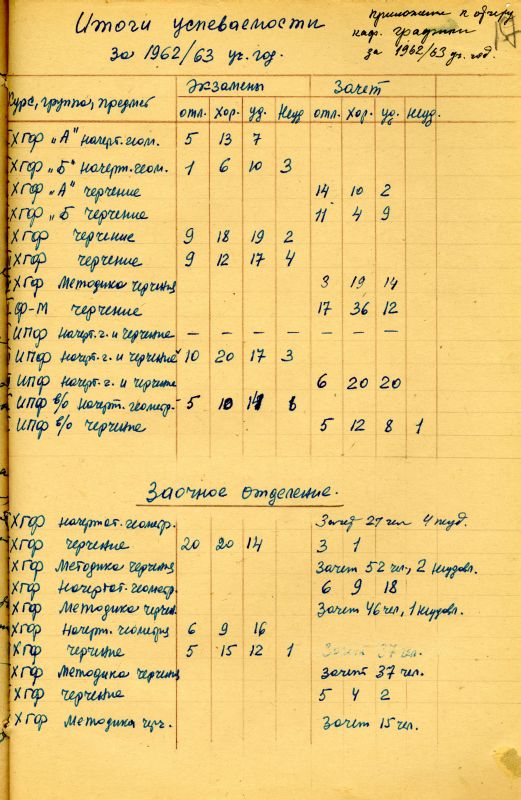 Итоги успеваемости
за 1962/63 уч. год.
приложение к отчету
каф. графики
за 1962/63 уч. год.
Экзамены Зачет
Курс, группа, предмет отл. хор. уд. неуд отл. хор. уд. неуд.
ХГФ „А" начерт. геом. 5 13 7
ХГФ „Б" начерт. геом. 1 6 10 3
ХГФ „А" черчение 14 10 2
ХГФ „Б черчение 11 4 9
ХГФ черчение 9 18 19 2
ХГФ черчение 9 12 17 4
ХГФ Методика черчения 3 19 14
Ф-М черчение 17 36 12
ИПФ Начерт. г. и черчение — — — — — — — —
ИПФ начерт. г. и черчение 10 20 17 3
ИПФ начерт. г. и черчение 6 20 20
ИПФ в/о начерт. геометр. 5 10
ИПФ в/о черчение 5 12 8 1
Заочное отделение.
ХГФ начертат. геометр. Зачет 27 чел 4 неуд.
ХГФ черчение 20 20 14 3 1
ХГФ Методика черчения Зачет 52 чел, 2 неудовл.
ХГФ Начертат. геометр. 6 9 18
ХГФ Методика черчен. Зачет 46 чел, 1 неудовл.
ХГФ Начерт. геометрия 6 9 16
ХГФ черчение 5 15 12 1 Зачет 37 чел.
ХГФ Методика черчения Зачет 37 чел.
ХГФ черчение 5 4 2
ХГФ Методика черч. Зачет 15 чел.